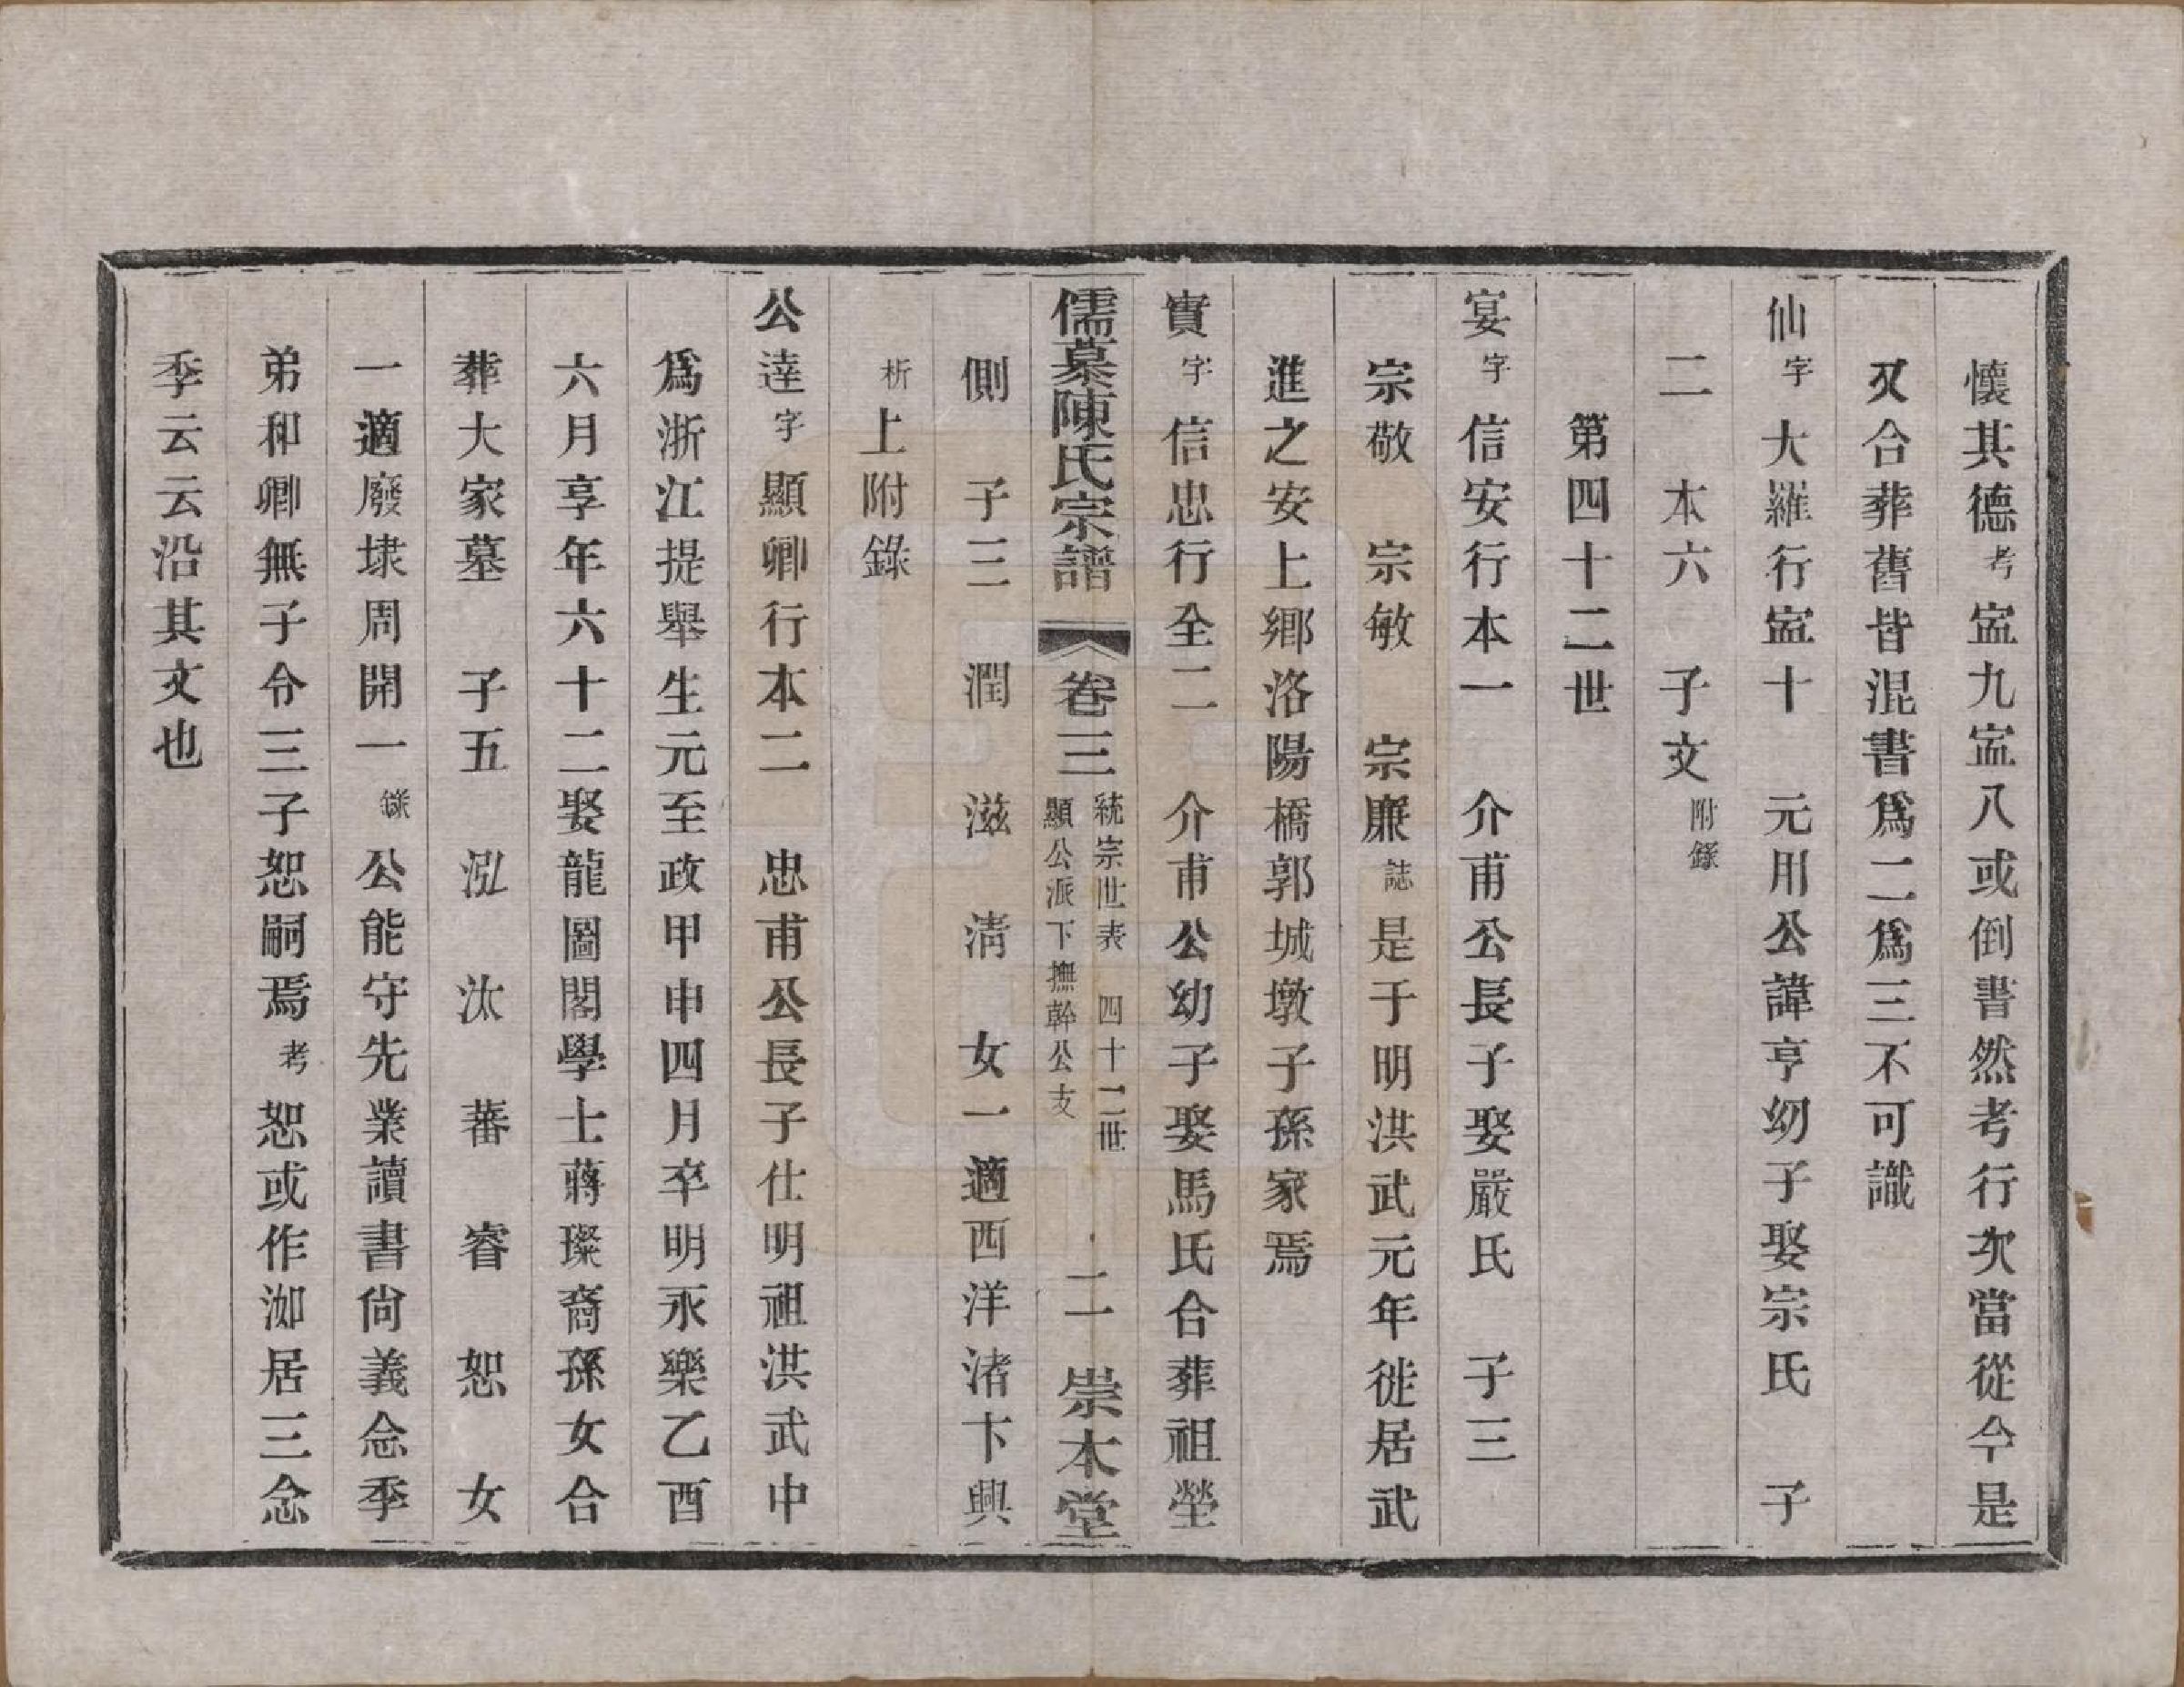 懷其德考寍九寍八或倒書然考行次當從今是
又合葬舊皆混書爲二爲三不可識
仙字大羅行寍十　元用公諱亨幼子娶宗氏　子
二　本六　子文附錄
第四十二世
宴字信安行本一　介甫公長子娶嚴氏　子三
宗敬　宗敏　宗廉誌是于明洪武元年徙居武
進之安上鄉洛陽橋郭城墩子孫家焉
實字信忠行全二　介甫公幼子娶馬氏合葬祖塋
儒慕陳氏宗譜　卷三　統宗世表　四十二世　顯公派下撫幹公支　二　崇本堂
側　子三　潤　滋　淸　女一適西洋渚卞興
析上附錄
公達字顯卿行本二　忠甫公長子仕明祖洪武中
爲浙江提舉生元至政甲申四月卒明永樂乙酉
六月享年六十二娶龍圖閣學士蔣璨裔孫女合
葬大家墓　子五　泓　汰　蕃　睿　恕　女
一適廢埭周開一錄公能守先業讀書尙義念季
弟和卿無子令三子恕嗣焉考恕或作洳居三念
季云云沿其文也